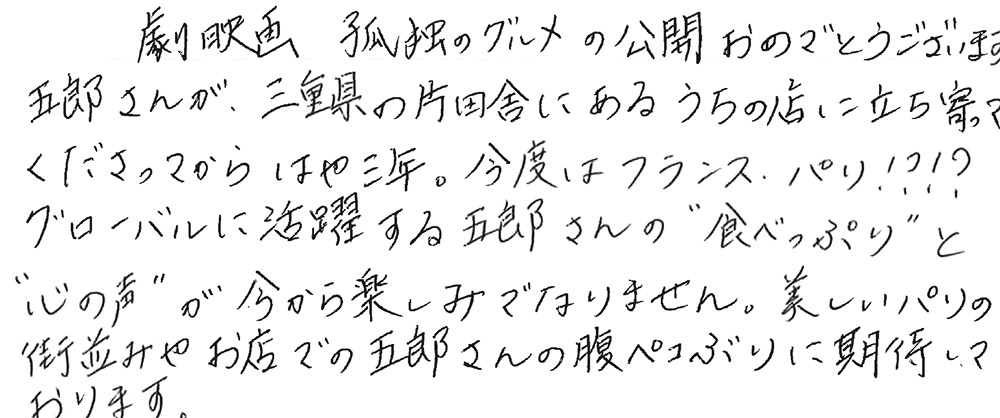 劇映画 孤独のグルメの公開おめでとうございます
五郎さんが、三重県の片田舎にあるうちの店に立ち寄って
くださってからはや三年。今度はフランス、パリ!?!?
グローバルに活躍する五郎さんの"食べっぷり"と
"心の声"が今から楽しみでなりません。美しいパリの
街並みやお店での五郎さんの腹ペコぶりに期待して
おります。